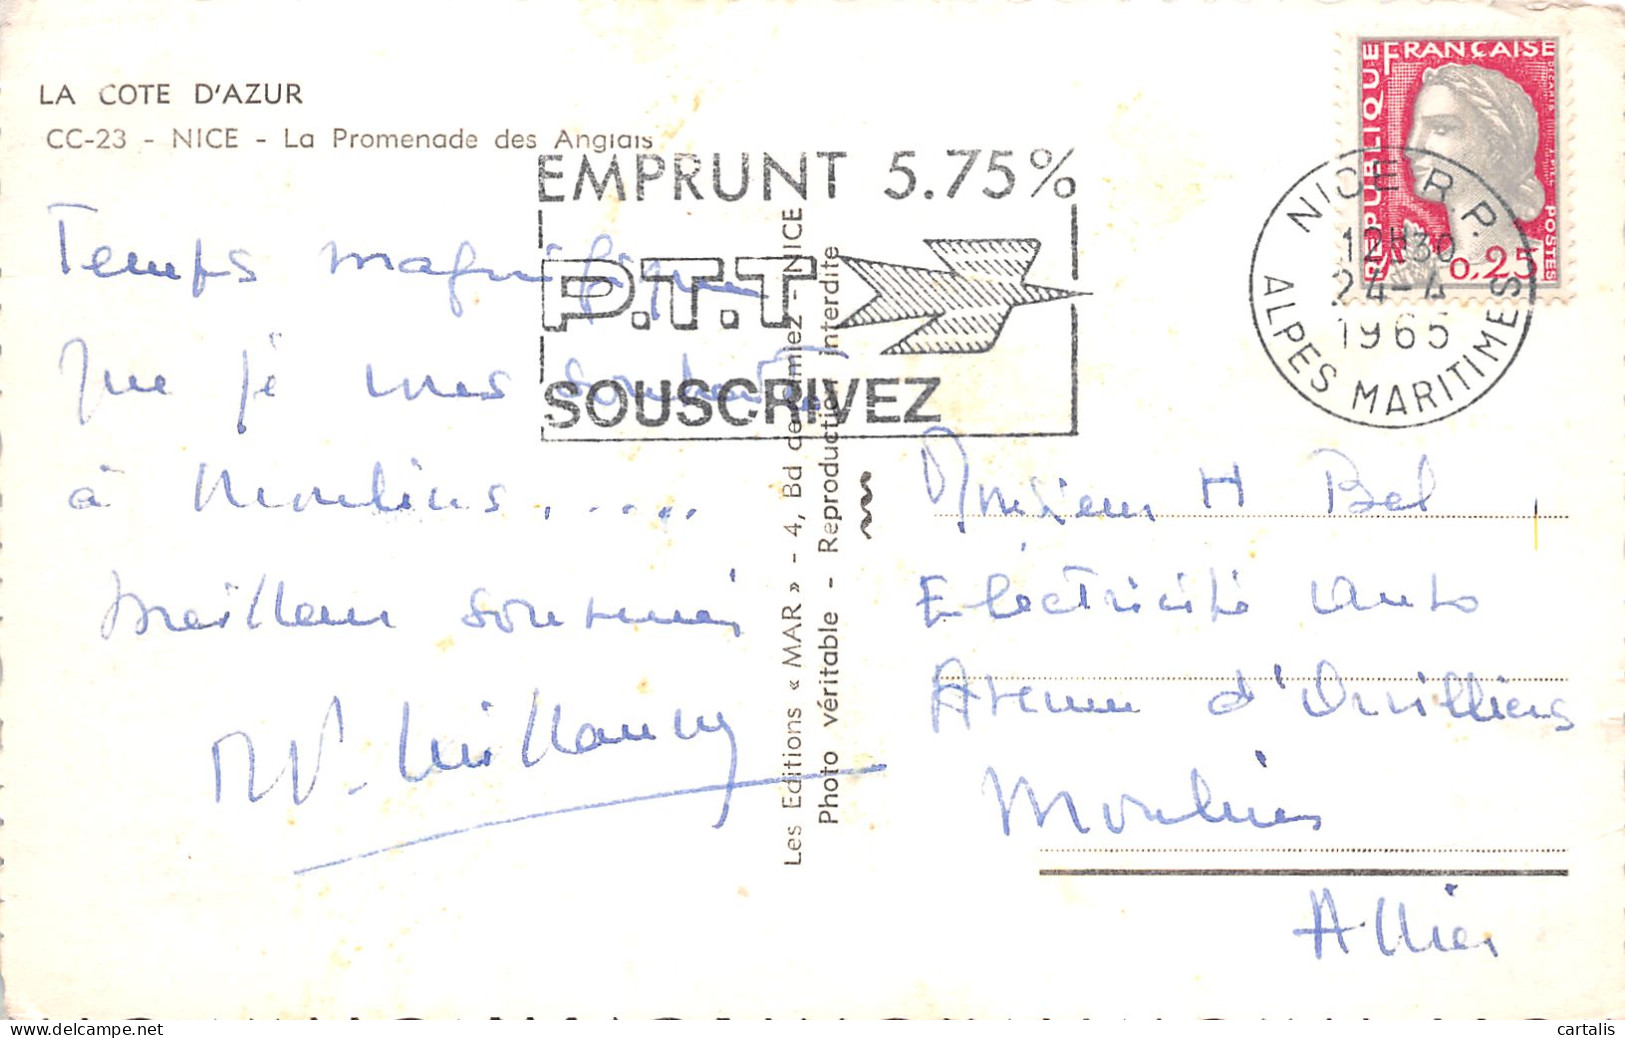 LA COTE D'AZUR
CC-23 - NICE - La Promenade des Anglais
EMPRUNT 5.75%
P.T.T
SOUSCRIVEZ
REPUBLIQUE FRANÇAISE
POSTES
0,25
NICE R.P.
12H30
24-4
1965
ALPES MARITIMES
Temps magnifique
que je vous souhaite
à Moulins.....
Meilleur souvenir
Les Editions « MAR » - 4, Bd de Cimiez - NICE
Photo véritable - Reproduction interdite
Monsieur H Bel
Electricité Auto
Avenue d'Orvilliers
Moulins
Allier
cartalis